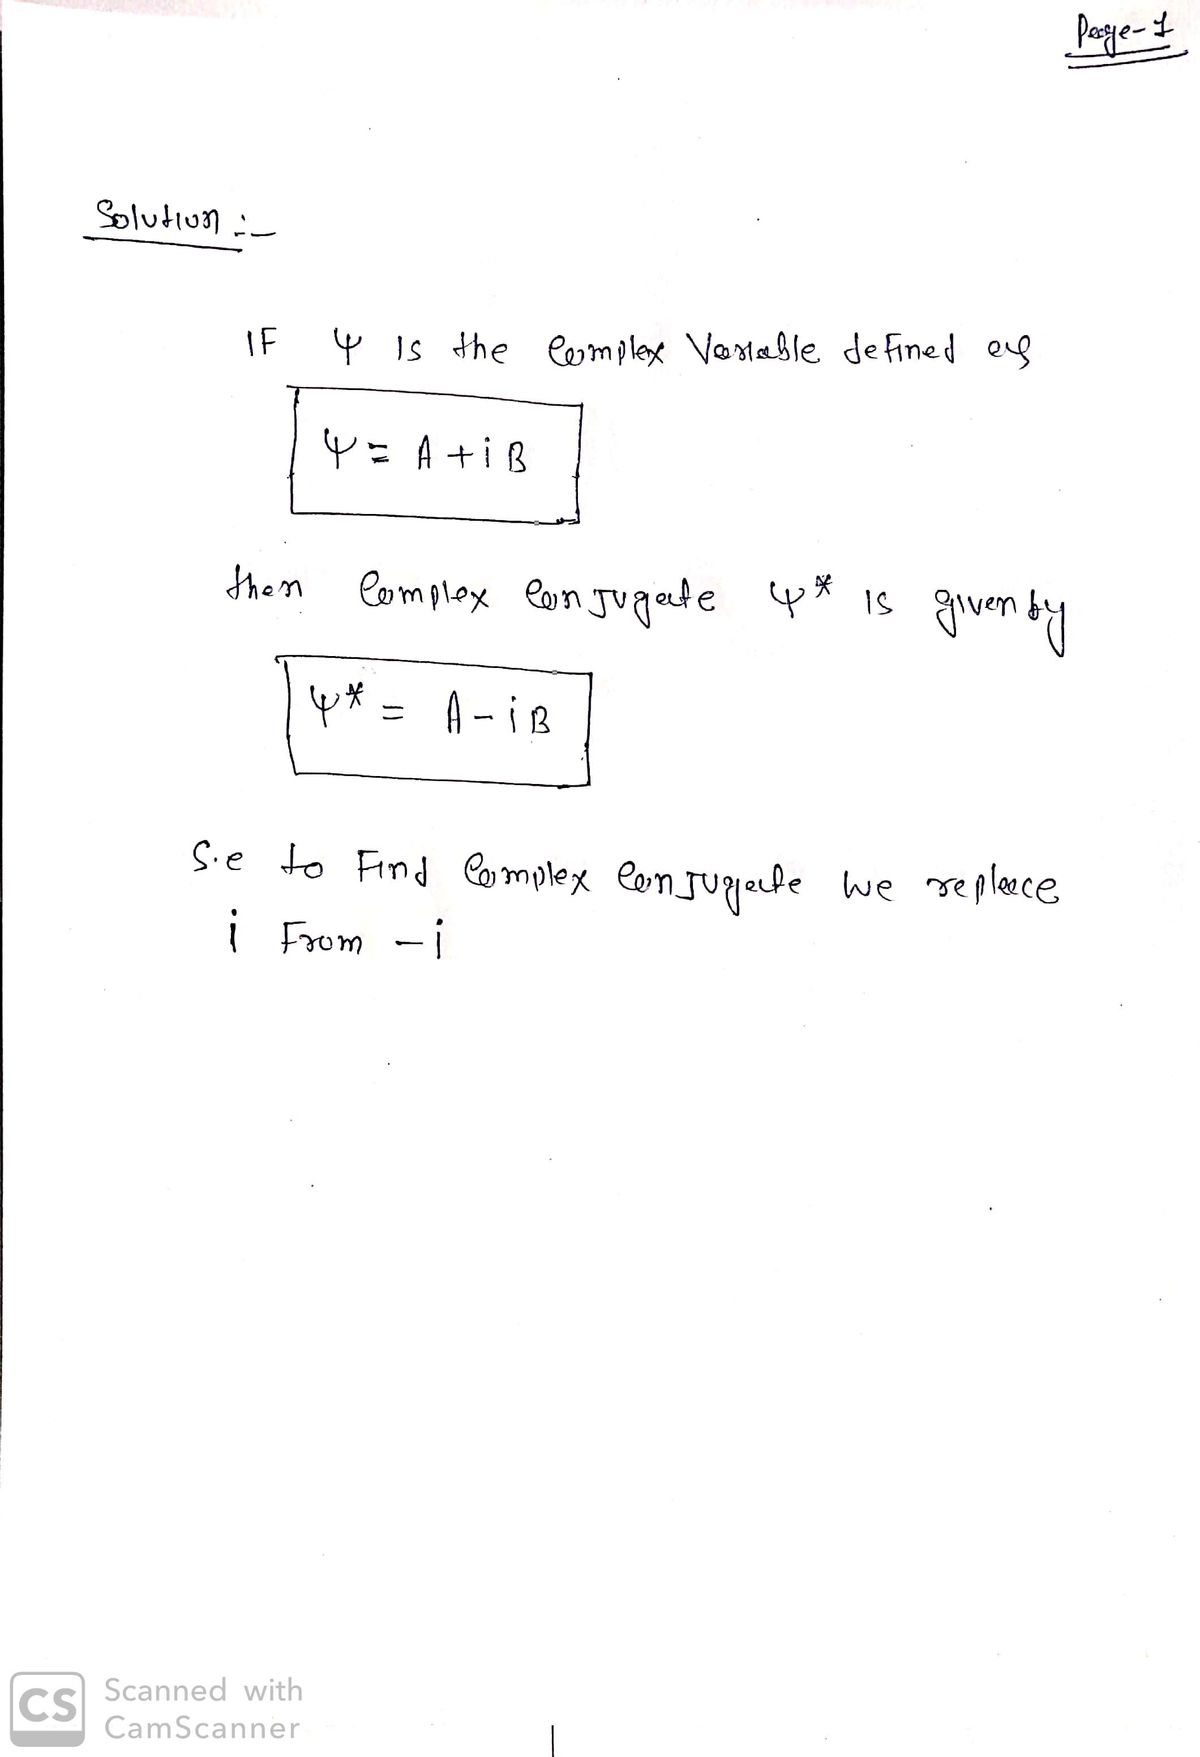 Page-1
Solution :-
IF ψ is the Complex Variable defined as
ψ = A + i B
then Complex Conjugate ψ* is given by
ψ* = A - i B
S.e to Find Complex Conjugate we replace
i From - i
CS
Scanned with
CamScanner